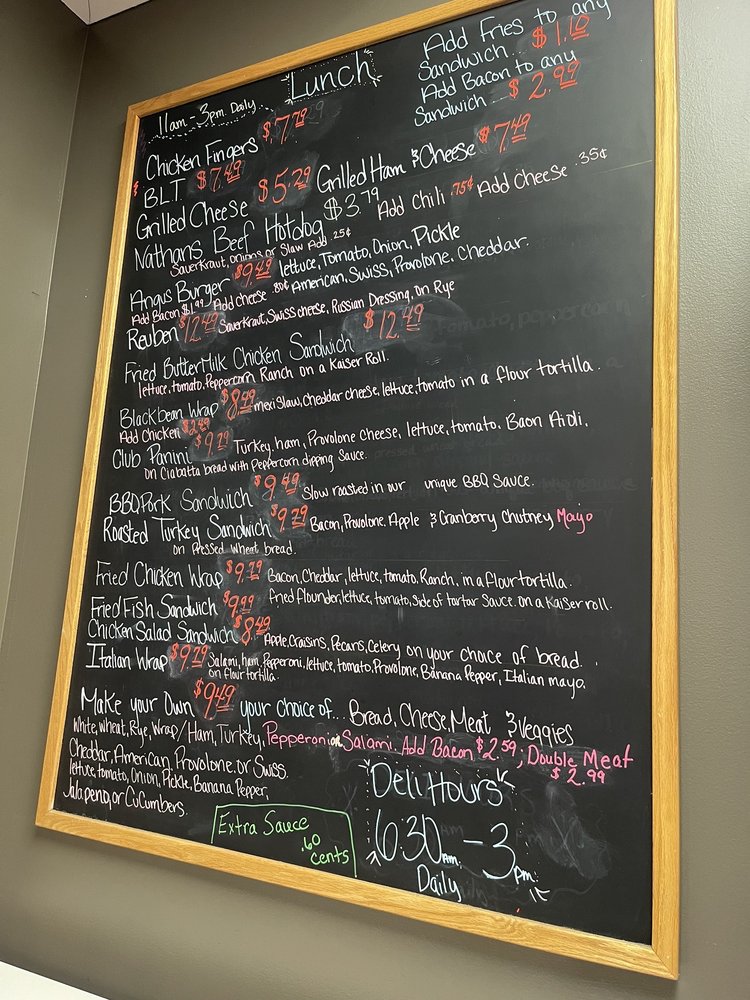 Lunch
11am - 3pm Daily
Add Fries to any
Sandwich... $1.10
Add Bacon to any
Sandwich... $2.99
Chicken Fingers $7.79
BLT $7.49
Grilled Cheese $5.29 Grilled Ham & Cheese $7.49
Nathans Beef Hotdog $3.79 Add Chili .75¢ Add Cheese .35¢
Sauerkraut, onions or Slaw Add .25¢
Angus Burger $9.49 lettuce, Tomato, Onion, Pickle
Add Bacon $1.99 Add cheese .80¢ American, Swiss, Provolone, Cheddar.
Reuben $12.49 Sauerkraut, Swiss cheese, Russian Dressing, on Rye
Fried ButterMilk Chicken Sandwich $12.49
lettuce, tomato, Peppercorn Ranch on a Kaiser Roll.
Blackbean Wrap $8.49 mexi Slaw, cheddar cheese, lettuce, tomato in a flour tortilla.
Add Chicken $2.49
Club Panini $9.79 Turkey, ham, Provolone Cheese, lettuce, tomato, Baon Aioli,
on Ciabatta bread with Peppercorn dipping Sauce.
BBQ Pork Sandwich $9.49 Slow roasted in our unique BBQ Sauce.
Roasted Turkey Sandwich $9.29 Bacon, Provolone, Apple & Cranberry Chutney Mayo
on Pressed Wheat bread.
Fried Chicken Wrap $9.79 Bacon, Cheddar, lettuce, tomato, Ranch, in a flour tortilla.
Fried Fish Sandwich $9.99 fried flounder, lettuce, tomato, Side of tartar Sauce. on a Kaiser roll.
Chicken Salad Sandwich $8.49 Apple, Craisins, Pecans, Celery on your choice of bread.
Italian Wrap $9.79 Salami, ham, Pepperoni, lettuce, tomato, Provolone, Banana Pepper, Italian mayo.
on flour tortilla.
Make your Own $9.49 your choice of... Bread, Cheese, Meat, & Veggies
White, Wheat, Rye, Wrap / Ham, Turkey, Pepperoni or Salami. Add Bacon $2.59; Double Meat
$2.99
Cheddar, American, Provolone, or Swiss.
lettuce, tomato, Onion, Pickle, Banana Pepper,
Jalapeno, or Cucumbers.
Extra Sauce
.60
cents
Deli Hours
6:30am - 3pm
Daily